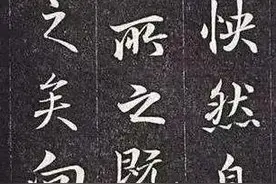 快然自
所之既
之矣向